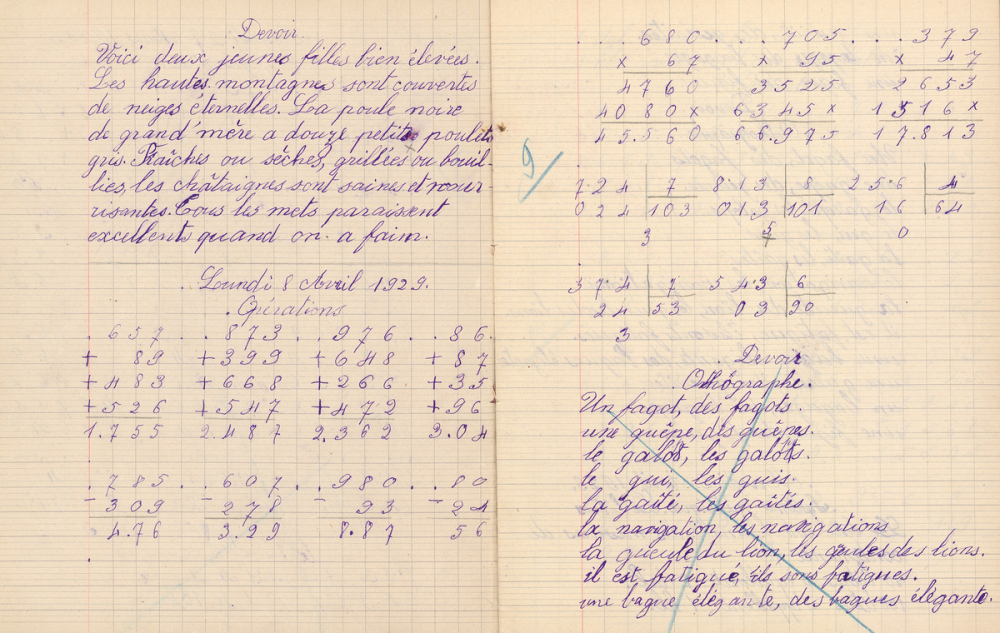 Devoir
Voici deux jeunes filles bien élevées.
Les hautes montagnes sont couvertes
de neiges éternelles. La poule noire
de grand'mère a douze petits poulets
gris. Fraîches ou sèches, grillées ou bouil-
lies, les châtaignes sont saines et nour-
risantes. Tous les mets paraissent
excellents quand on a faim.
Lundi 8 Avril 1929.
Opérations
657 873 976 86
+ 89 + 399 + 648 + 87
+ 483 + 668 + 266 + 35
+ 526 + 547 + 472 + 96
1.755 2.487 2.362 3.04
785 607 980 80
- 309 - 278 93 - 24
4.76 3.29 8.87 56
680 705 379
x 67 x 95 x 47
4760 3525 2653
4080x 6345x 1516x
45.560 66.975 17.813
9
724 7 8.13 8 25.6 4
024 103 013 101 16 64
3 5 0
37.4 7 54.3 6
24 53 03 90
3
Devoir
Orthographe.
Un fagot, des fagots.
une guêpe, des guêpes.
le galop, les galops.
le gui, les guis.
la gaîté, les gaîtés.
la navigation, les navigations
la gueule du lion, les gueules des lions.
il est fatigué, ils sont fatigués.
une bague élégante, des bagues élégante.